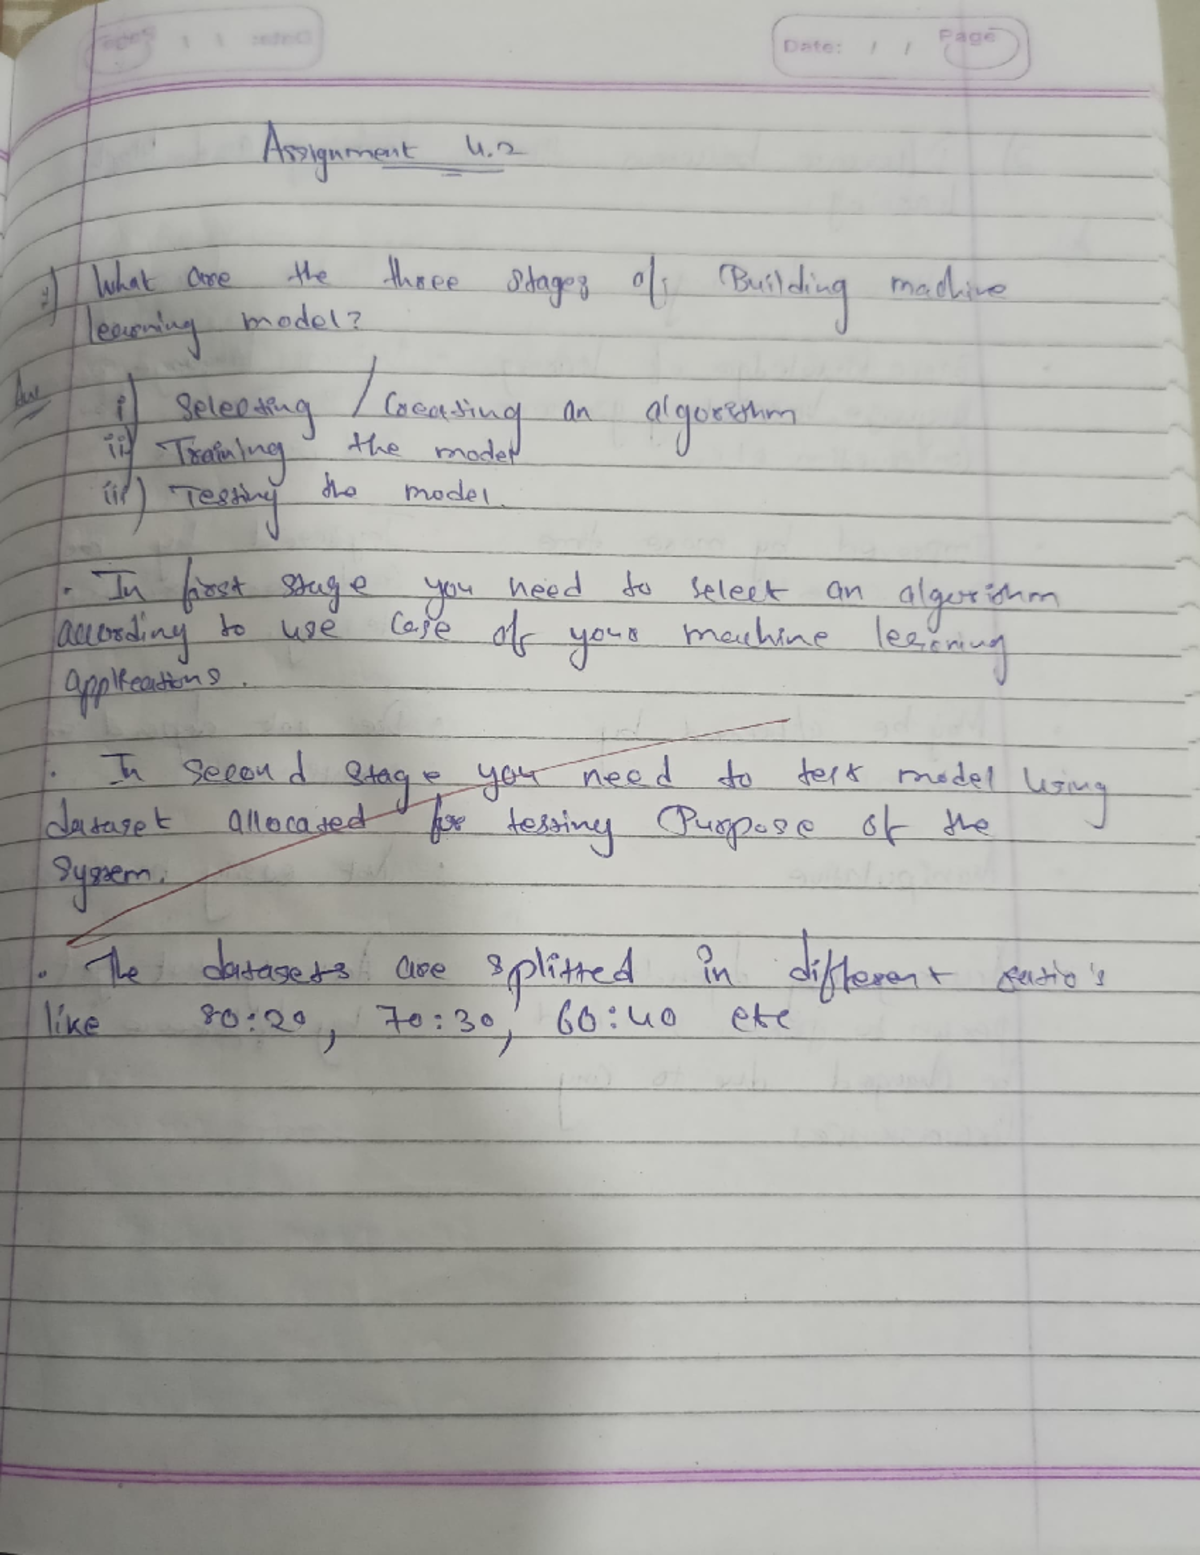 Date: / / Page
Assignment 4.2
1) What are the three stages of Building machine
learning model?
Ans
i) Selecting / Creating an algorithm
ii) Training the model
iii) Testing the model.
· In first stage you need to select an algorithm
according to use case of your machine learning
applications.
· In second stage you need to test model using
dataset allocated for testing Purpose of the
System.
· The datasets are splitted in different ratio's
like 80:20, 70:30, 60:40 etc